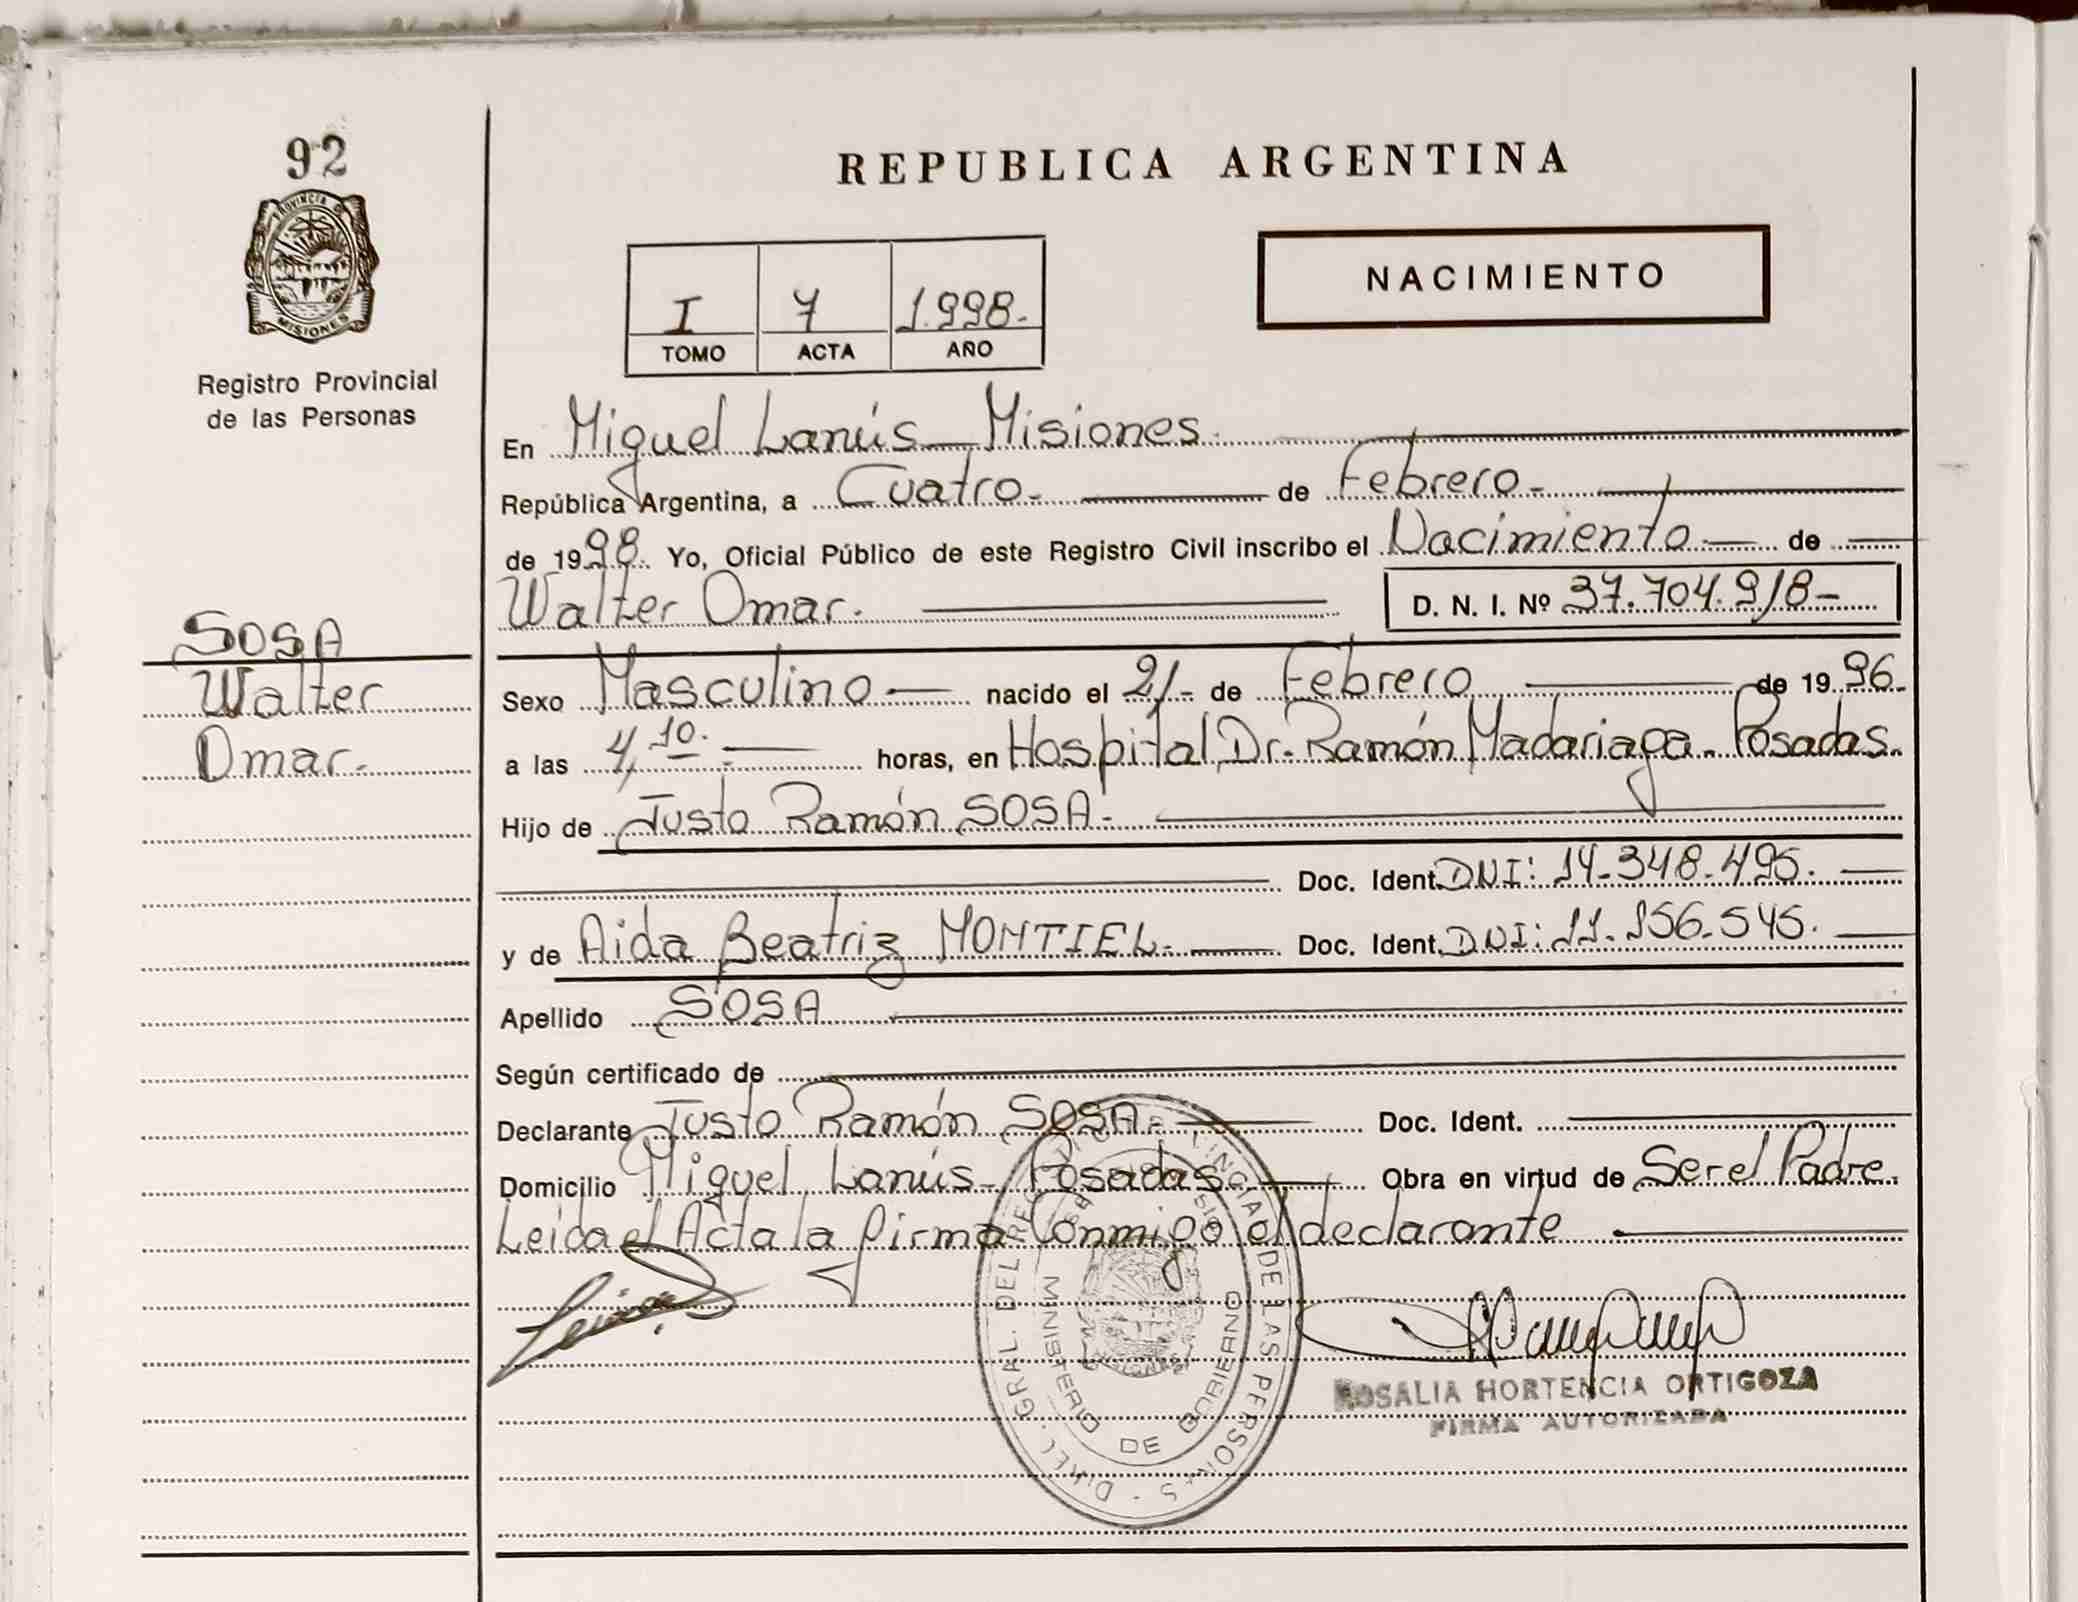 92
PROVINCIA DE
MISIONES
Registro Provincial
de las Personas
SOSA
Walter
Omar.-
REPUBLICA ARGENTINA
NACIMIENTO
I 7 1.998.-
TOMO ACTA AÑO
En Miguel Lanús - Misiones.
República Argentina, a Cuatro.- de Febrero.-
de 1998. Yo, Oficial Público de este Registro Civil inscribo el Nacimiento de
Walter Omar. D. N. I. Nº 37.704.918-
Sexo Masculino nacido el 21.- de Febrero de 1996.
a las 4,10.- horas, en Hospital Dr. Ramón Madariaga. Posadas.
Hijo de Justo Ramón SOSA.-
Doc. Ident. DNI: 14.348.495.
y de Aida Beatriz MONTIEL.- Doc. Ident. DNI: 11.156.545.
Apellido SOSA
Según certificado de
Declarante Justo Ramón SOSA.- Doc. Ident.
Domicilio Miguel Lanús - Posadas. Obra en virtud de Ser el Padre.
Leida el Acta la firma Conmigo el declarante
DIREC. GRAL. DEL REG. PROVINCIAL DE LAS PERSONAS
MINISTERIO DE GOBIERNO
ROSALIA HORTENCIA ORTIGOZA
FIRMA AUTORIZADA